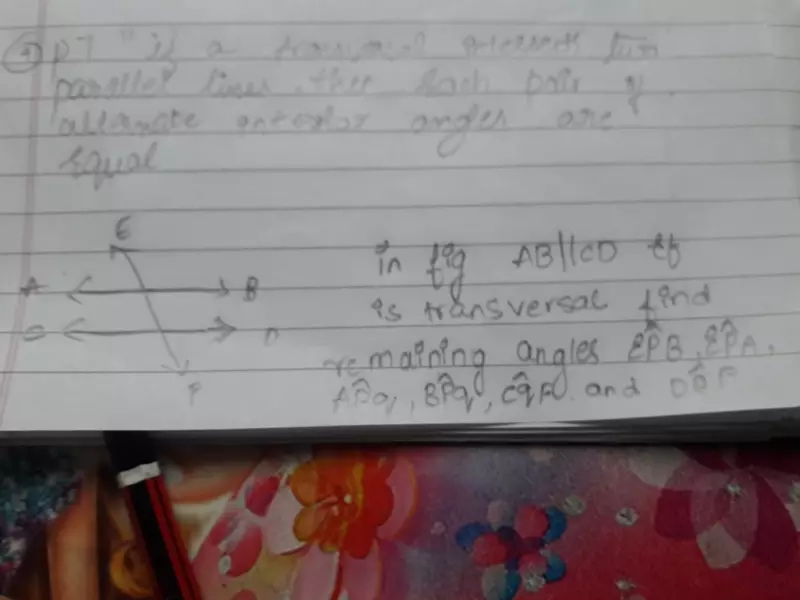 ② PT "if a transversal intersects two
parallel lines then each pair of
alternate interior angles are
equal
E
A B
C D
F
in fig AB||CD EF
is transversal find
remaining angles EP̂B, EP̂A,
AP̂q, BP̂q, Cq̂F and DQ̂F